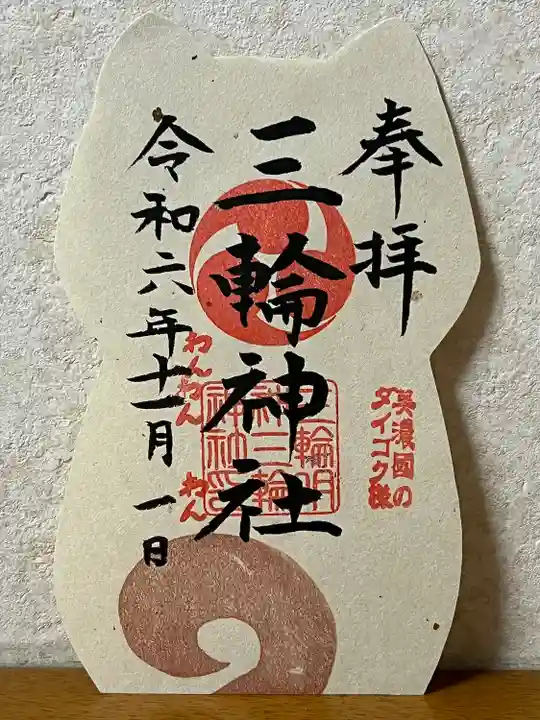 奉拝
美濃國の
ダイゴク様
三輪神社
三輪明
神社三輪
神社
令和六年十一月一日
わんわん
わん